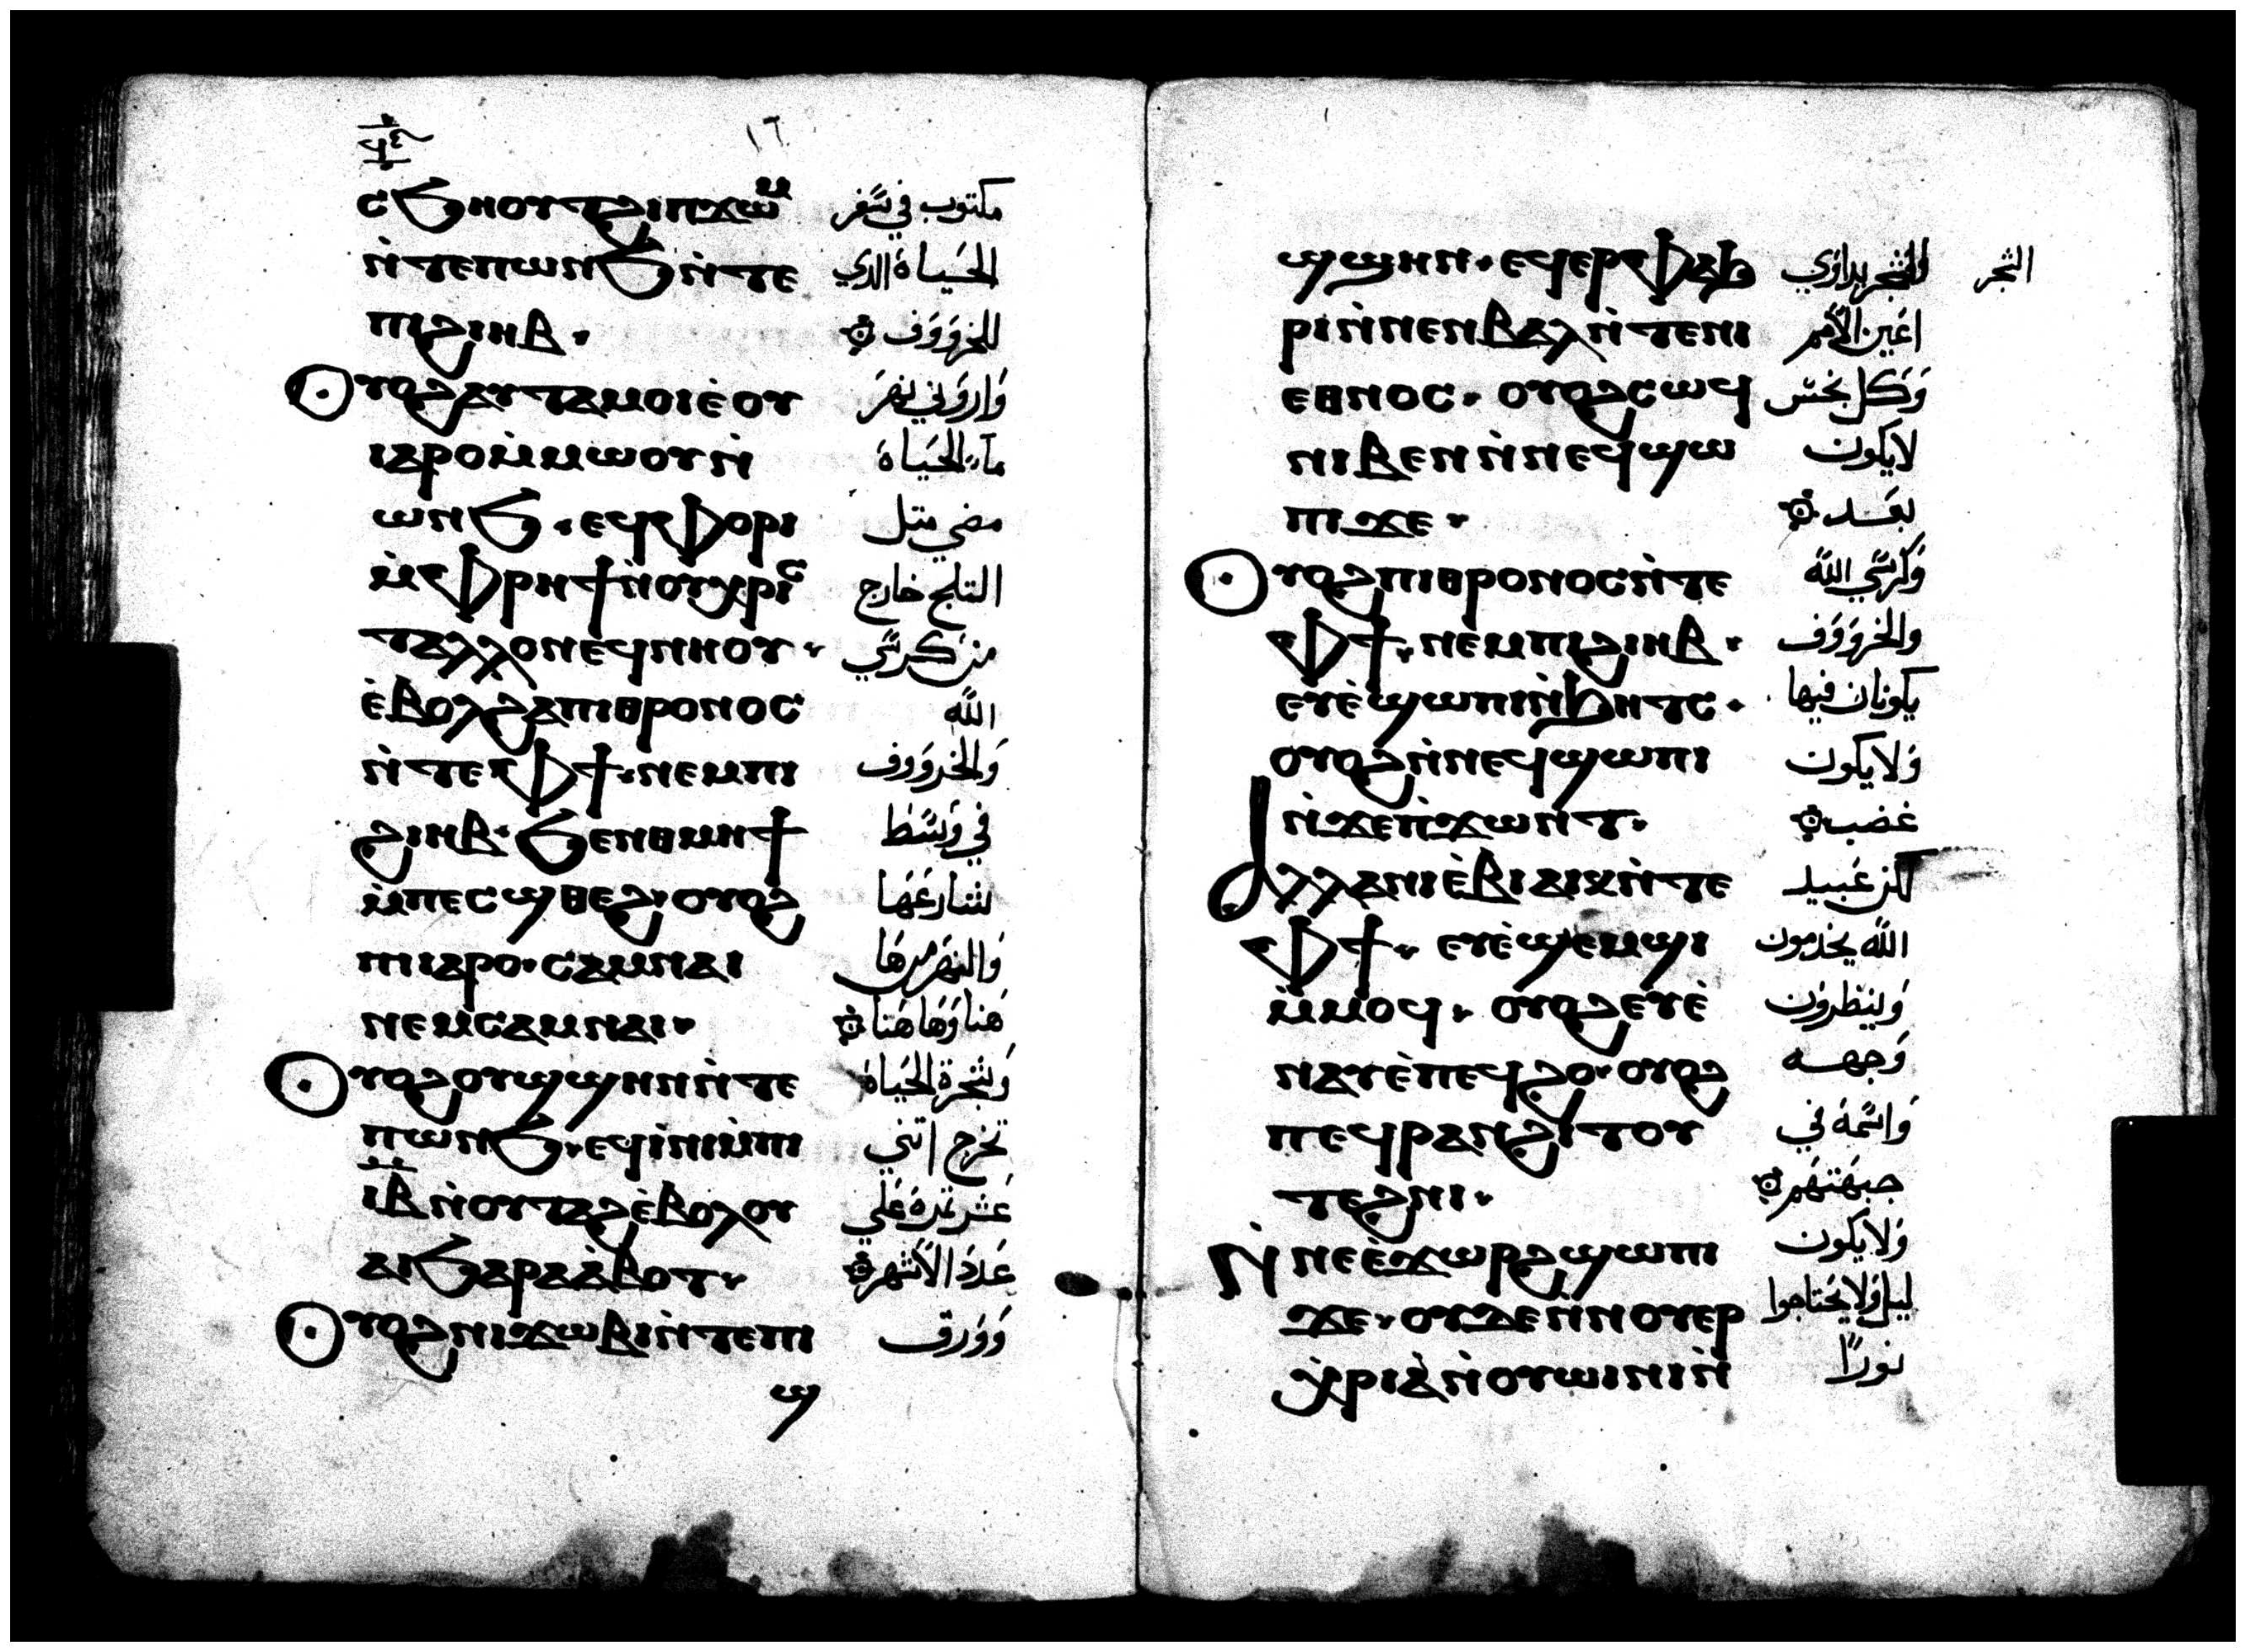 ⲥϧⲏⲟⲩⲧϩⲓⲡϫⲱⲙ مكتوب في سفر
ⲛ̀ⲧⲉⲡⲱⲛϧⲛ̀ⲧⲉ الحياة الدي
ⲡⲓϩⲓⲏⲃ. للخروف
ⲟⲩⲟϩⲁⲩⲧⲁⲙⲟⲓⲉ̀ⲟⲩ واروني نهر
ⲓⲁⲣⲟⲙ̀ⲙⲱⲟⲩⲛ̀ ماء الحياة
ⲱⲛϧ. ⲉϥⲫⲟⲣⲓ مضي متل
ⲙ̀ⲫⲣⲏϯⲛ̀ⲟⲩⲭⲣⲓⲥ التلج خارج
ⲧⲁⲗⲗⲟⲛⲉϥⲛⲏⲟⲩ. من كرسي
ⲉ̀ⲃⲟⲗϩⲁⲡⲓⲑⲣⲟⲛⲟⲥ الله
ⲛ̀ⲧⲉⲫϯ. ⲛⲉⲙⲡⲓ والخروف
ϩⲓⲏⲃ. ϧⲉⲛⲑⲙⲏϯ في وسط
ⲙ̀ⲡⲉⲥϣⲑⲉϩ. ⲟⲩⲟϩ شارعها
ⲡⲓⲁⲣⲟ. ⲥⲁⲙⲛⲁⲓ والنهر من ها
ⲛⲉⲙⲥⲁⲙⲛⲁⲓ. هنا وها هنا
ⲟⲩⲟϩⲟⲩϣϣⲏⲛⲛ̀ⲧⲉ وشجرة الحياة
ⲡⲱⲛϧ. ⲉϥⲓ̀ⲛⲓⲙ̀ⲡⲓ تخرج اتني
ⲓⲃⲛ̀ⲟⲩⲧⲁϩⲉ̀ⲃⲟⲗⲟⲩ عشر تمرة علي
ⲁⲓϧⲁⲣⲁⲁ̀ⲃⲟⲧ. عدد الاشهر
ⲟⲩⲟϩⲛⲓϫⲱⲃⲓⲛ̀ⲧⲉⲡⲓ وورق
ϣ
ϣϣⲏⲛ. ⲉϥⲉⲣⲫⲁϧ الشجر يداوي الشجر
ⲣⲓⲛ̀ⲛⲉⲛⲃⲁⲗⲛ̀ⲧⲉⲛⲓ اعين الامم
ⲉⲑⲛⲟⲥ. ⲟⲩⲟϩⲥⲱϥ وكل نجس
ⲛⲓⲃⲉⲛⲛ̀ⲛⲉϥϣⲱ لا يكون
ⲡⲓϫⲉ. بعد
ⲟⲩⲟϩⲡⲓⲑⲣⲟⲛⲟⲥⲛ̀ⲧⲉ وكرسي الله
ⲫϯ. ⲛⲉⲙⲡⲓϩⲓⲏⲃ. والخروف
ⲉⲩⲉ̀ϣⲱⲡⲓⲛ̀ϧⲏⲧⲥ. يكونان فيها
ⲟⲩⲟϩⲛ̀ⲛⲉϥϣⲱⲡⲓ ولا يكون
ⲛ̀ϫⲉⲡ̀ϫⲱⲛⲧ. غضب
ⲁⲗⲗⲁⲛⲓⲉ̀ⲃⲓⲁⲓⲕⲛ̀ⲧⲉ لكن عبيد
ⲫϯ. ⲉⲩⲉ̀ϣⲉⲙϣⲓ الله يخدمون
ⲙ̀ⲙⲟϥ. ⲟⲩⲟϩⲉⲩⲉ̀ وينظرون
ⲛⲁⲩⲉ̀ⲡⲉϥϩⲟ. ⲟⲩⲟϩ وجهه
ⲡⲉϥⲣⲁⲛϩⲓⲧⲟⲩ واسمه في
ⲧⲉϩⲛⲓ. جبهتهم
ⲛ̀ⲛⲉⲉ̀ϫⲱⲣϩϣⲱⲡⲓ ولا يكون
ϫⲉ. ⲟⲩϫⲉⲛ̀ⲛⲟⲩⲉⲣ ليل ولا يحتاجوا
ⲭ̀ⲣⲓⲁ̀ⲛ̀ⲟⲩⲱⲓⲛⲓⲛ̀ نورًا